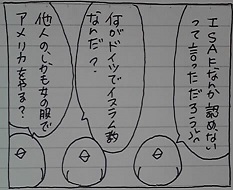 ISAFなんか認めない
って言っただろう!
何がドイツでイスラム教
なんだ?
他人のしかも女の服で
アメリカをやる?